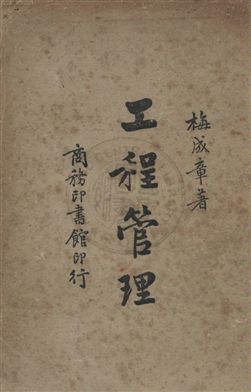 梅成章著
工程管理
商務印書館印行